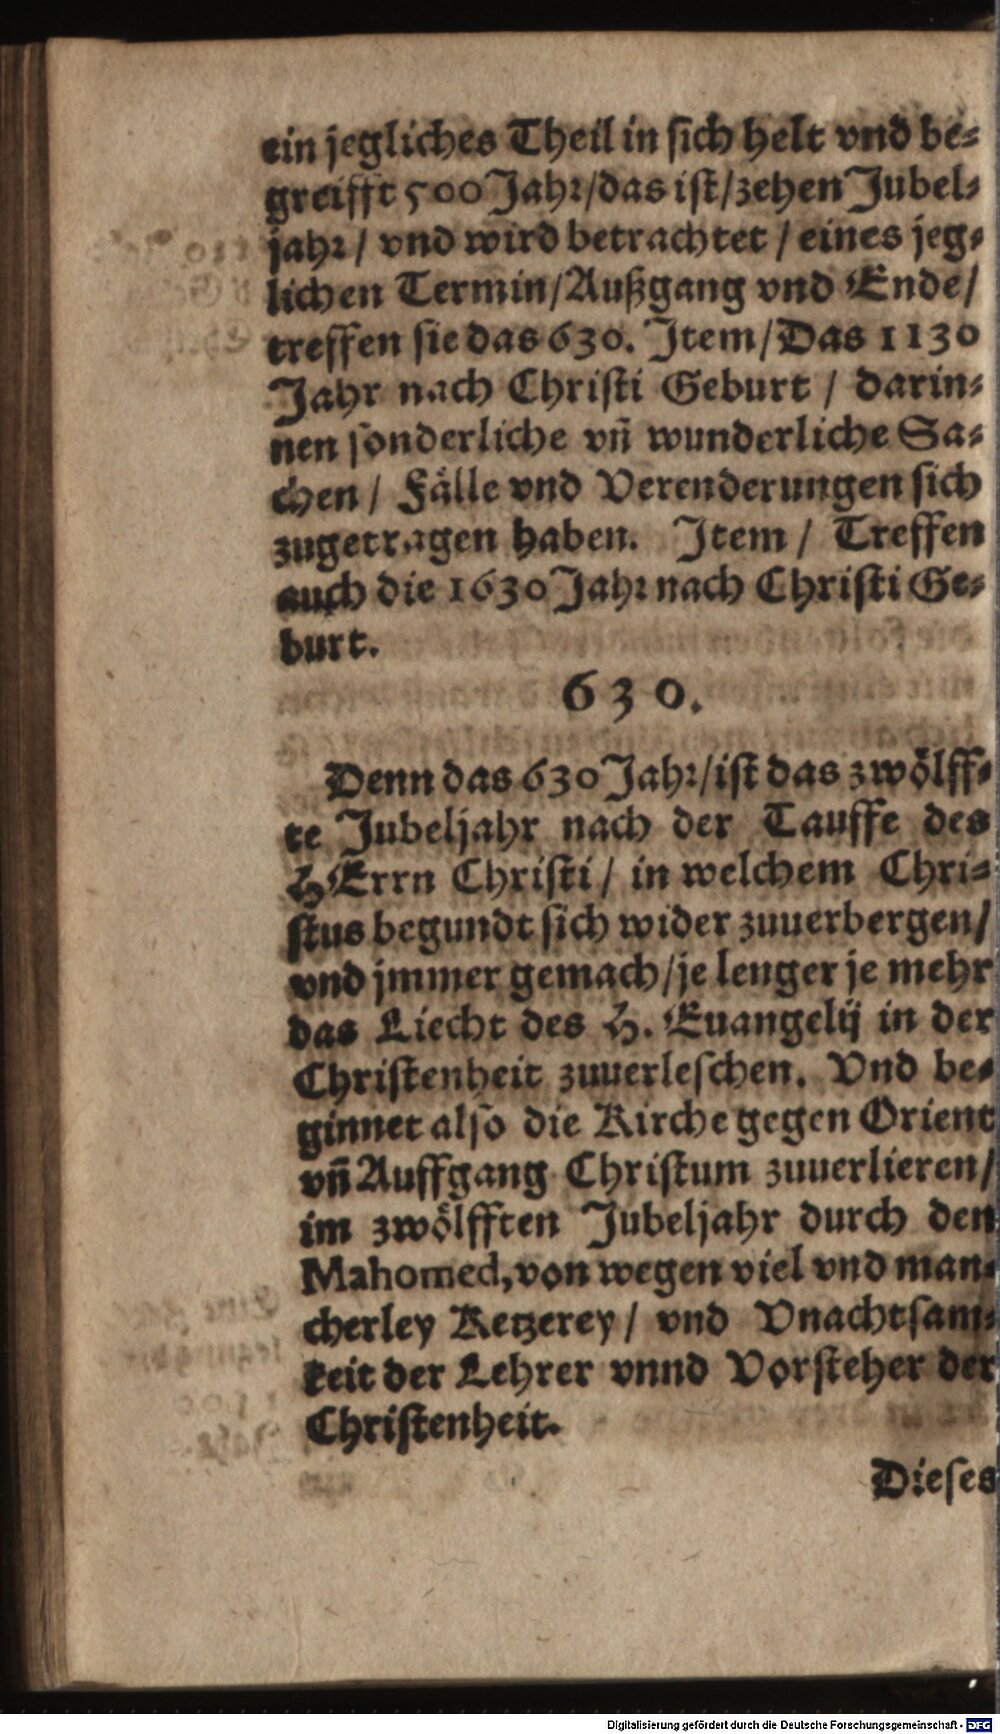 ein jegliches Theil in sich helt vnd be⸗
greifft 500 Jahr/das ist/zehen Jubel⸗
jahr/ vnd wird betrachtet / eines jeg⸗
lichen Termin/Außgang vnd Ende/
treffen sie das 630. Item/Das 1130
Jahr nach Christi Geburt / darin⸗
nen sonderliche vñ wunderliche Sa⸗
chen / Fälle vnd Verenderungen sich
zugetragen haben. Item / Treffen
auch die 1630 Jahr nach Christi Ge⸗
burt.
630.
Denn das 630 Jahr/ist das zwölff⸗
te Jubeljahr nach der Tauffe des
HErrn Christi / in welchem Chri⸗
stus begundt sich wider zuuerbergen/
vnd jmmer gemach/je lenger je mehr
das Liecht des H. Euangelij in der
Christenheit zuuerleschen. Vnd be⸗
ginnet also die Kirche gegen Orient
vñ Auffgang Christum zuuerlieren/
im zwölfften Jubeljahr durch den
Mahomed, von wegen viel vnd man⸗
cherley Ketzerey / vnd Vnachtsam⸗
keit der Lehrer vnnd Vorsteher der
Christenheit.
Dieses
Digitalisierung gefördert durch die Deutsche Forschungsgemeinschaft - DFG